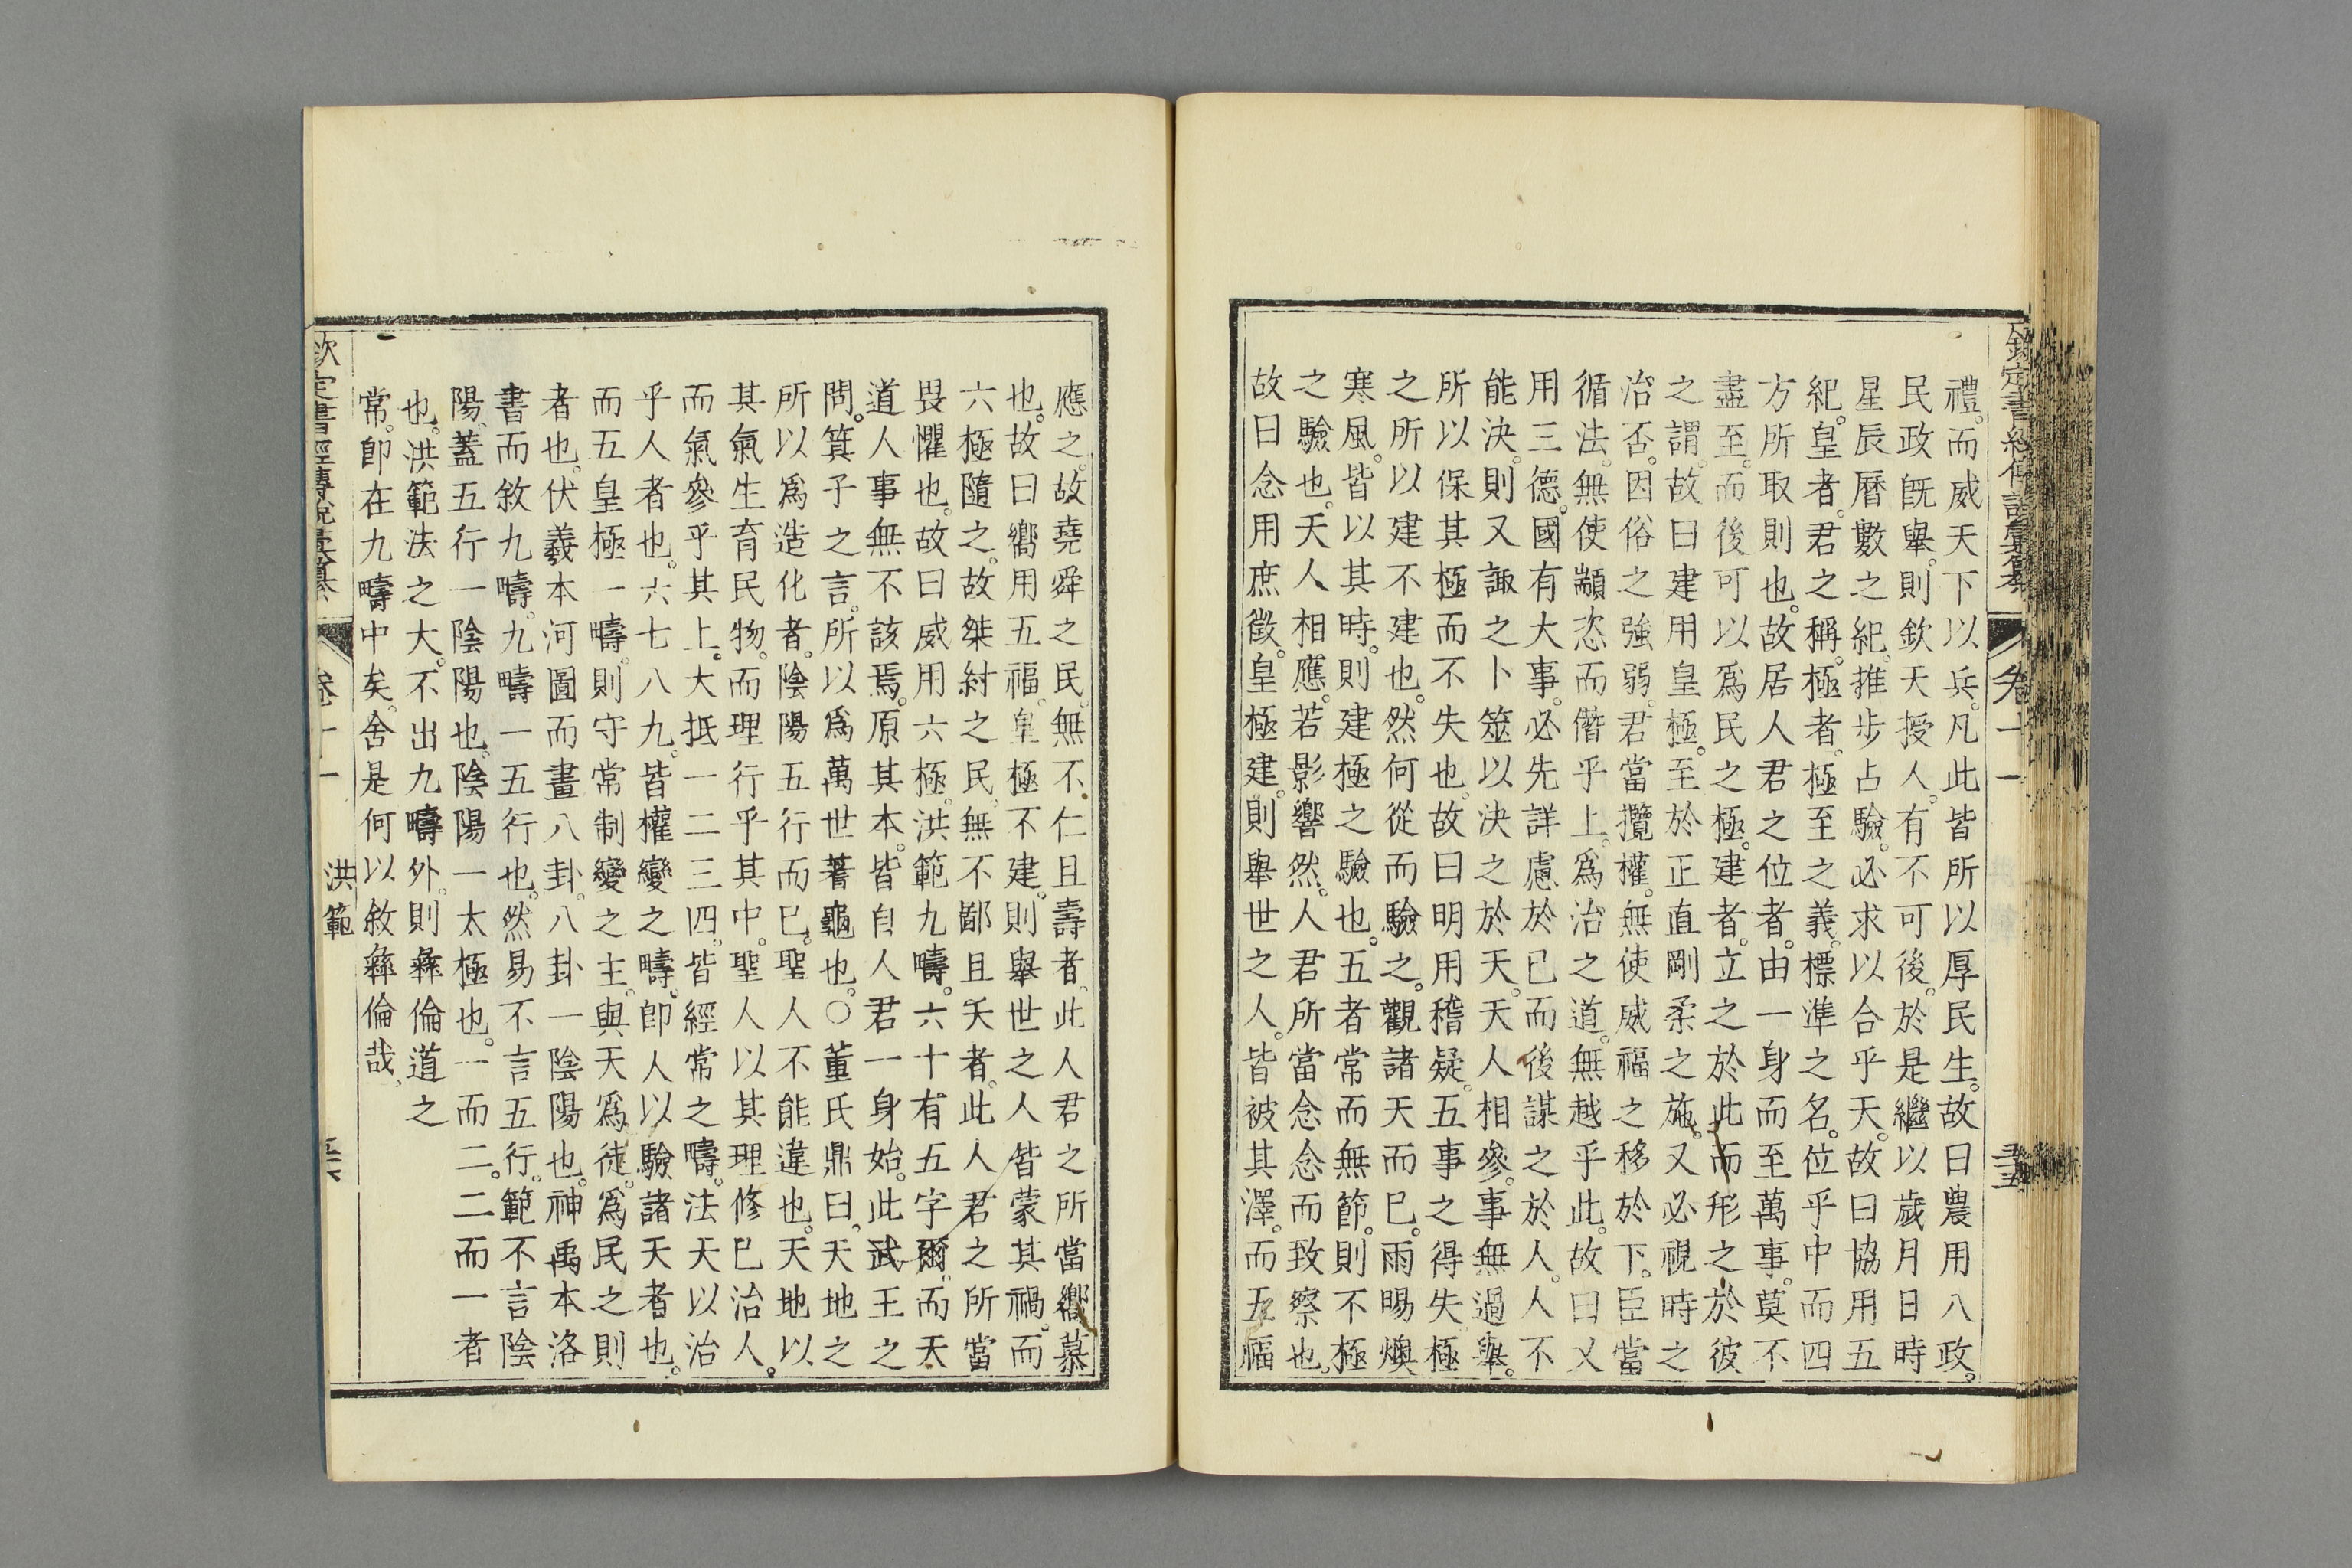 欽定書經傳說彙纂 卷十一
禮。而威天下以兵。凡此皆所以厚民生。故曰農用八政。
民政旣舉。則欽天授人。有不可後。於是繼以歲月日時
星辰曆數之紀。推步占驗。必求以合乎天。故曰協用五
紀。皇者。君之稱。極者。極至之義。標準之名。位乎中而四
方所取則也。故居人君之位者。由一身而至萬事。莫不
盡至。而後可以爲民之極。建者。立之於此而形之於彼
之謂。故曰建用皇極。至於正直剛柔之施。又必視時之
治否。因俗之強弱。君當攬權。無使威福之移於下。臣當
循法。無使顓恣而僭乎上。爲治之道。無越乎此。故曰乂
用三德。國有大事。必先詳慮於已而後謀之於人。人不
能決。則又諏之卜筮以決之於天。天人相參。事無過舉。
所以保其極而不失也。故曰明用稽疑。五事之得失極
之所以建不建也。然何從而驗之。觀諸天而已。雨暘燠
寒風。皆以其時。則建極之驗也。五者常而無節。則不極
之驗也。天人相應。若影響然。人君所當念念而致察也。
故曰念用庶徵。皇極建。則舉世之人。皆被其澤。而五福
應之。故堯舜之民。無不仁且壽者。此人君之所當嚮慕
也。故曰嚮用五福。皇極不建。則舉世之人皆蒙其禍。而
六極隨之。故桀紂之民。無不鄙且夭者。此人君之所當
畏懼也。故曰威用六極。洪範九疇。六十有五字爾。而天
道人事無不該焉。原其本。皆自人君一身始。此武王之
問。箕子之言。所以爲萬世蓍龜也。○董氏鼎曰。天地之
所以爲造化者。陰陽五行而已。聖人不能違也。天地以
其氣生育民物。而理行乎其中。聖人以其理修已治人。
而氣參乎其上。大抵一二三四。皆經常之疇。法天以治
乎人者也。六七八九。皆權變之疇。卽人以驗諸天者也。
而五皇極一疇。則守常制變之主。與天爲徒。爲民之則
者也。伏羲本河圖而畫八卦。八卦一陰陽也。神禹本洛
書而敘九疇。九疇一五行也。然易不言五行。範不言陰
陽。蓋五行一陰陽也。陰陽一太極也。一而二。二而一者
也。洪範法之大。不出九疇外。則彝倫道之
常。卽在九疇中矣。舍是何以敘彝倫哉。
欽定書經傳說彙纂 卷十一 洪範